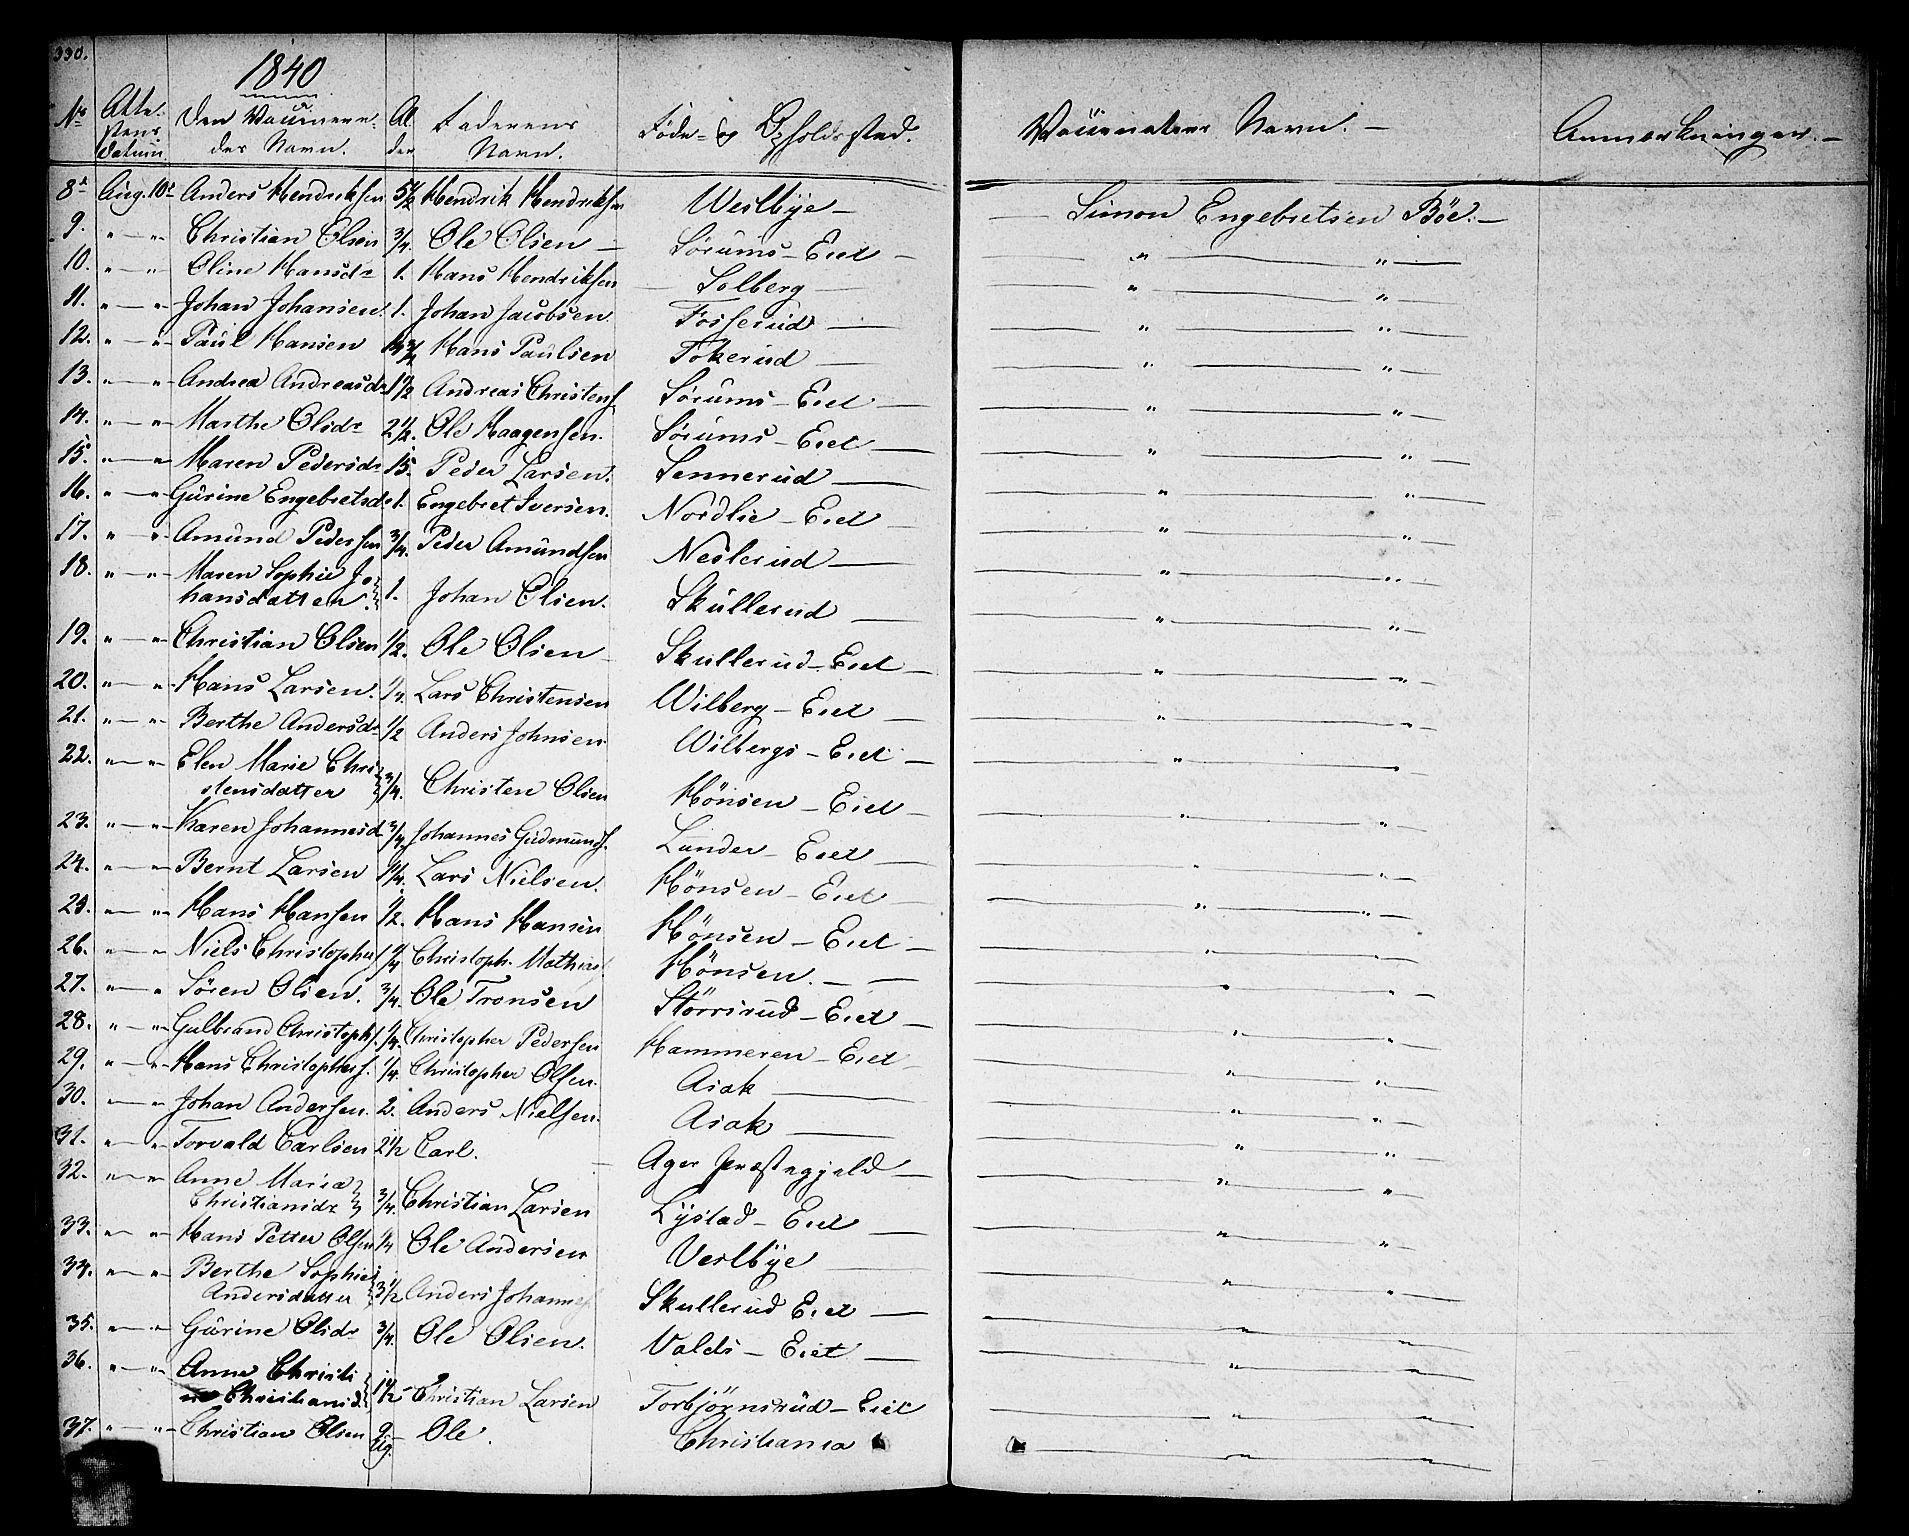 330.
1840
No Atte-stens Datum. Den Vaccineredes Navn. Alder Faderens Navn. Føde- og Opholdsstad. Vaccinateurs Navn. Anmærkninger.
8. Aug. 10. Anders Hendriksen 5 1/2 Hendrik Hendriksen Westbye — Simon Engebretsen Böe. —
9. " — " — Christian Olsen 3/4 Ole Olsen — Sørums-Eiet — " — " —
10. " — " Oline Hansdr 1. Hans Hendriksen — Solberg — " — " —
11. " — " Johan Johansen. 1. Johan Jacobsen. Fosserud — " — " —
12. " — " — Paul Hansen 3/4 Hans Paulsen Tokerud — " — " —
13. " — " — Andrea Andreasdr 1 1/2 Andreas Christens. Sørums-Eiet — " — " —
14. " — " — Marthe Olsdr 2 1/2. Ole Haagensen. Sørums-Eiet — " — " —
15. " — " — Maren Pedersdr 15. Peder Larsen. Sennerud — " — " —
16. " — " — Gurine Engebretsd. 1. Engebret Iversen. Nordlie-Eiet — " — " —
17. " — " — Amund Pedersen 3/4. Peder Amundsen Neslerud — " — " —
18. " — " — Maren Sophie Jo-
hansdatter. 1. Johan Olsen. Skullerud — " — " —
19. " — " — Christian Olsen 1/2. Ole Olsen — Skullerud-Eiet — " — " —
20. " — " — Hans Larsen. 1/4 Lars Christensen Wilberg-Eiet — " — " —
21. " — " — Berthe Andersdr 1/2 Anders Johnsen Wilbergs-Eiet — " — " —
22. " — " — Elen Marie Chri-
stensdatter 3/4. Christen Olsen Hönsen-Eiet — " — " —
23. " — " — Karen Johannesd 3/4 Johannes Gudmunds. Lunder-Eiet — " — " —
24. " — " — Bernt Larsen 1/4. Lars Nielsen. Hönsen-Eiet — " — " —
25. " — " — Hans Hansen 1/2. Hans Hansen Hönsen-Eiet — " — " —
26. " — " — Niels Christophers 1/4 Christoph. Mathias. Hönsen. — " — " —
27. " — " Sören Olsen. 3/4. Ole Tronsen Störrsrud-Eiet — " — " —
28. " — " — Gulbrand Christophs. 1/4. Christopher Pedersen Hammeren-Eiet — " — " —
29. " — " — Hans Christophers. 1/4. Christopher Olsen. Asak — " — " —
30. " — " — Johan Andersen. 2. Anders Nielsen. Asak — " — " —
31. " — " Torvald Carlsen 2 1/2 Carl. — Ager Præstegjeld — " — " —
32. " — " — Anne Maria
Christiansdr 3/4. Christian Larsen Lystad-Eiet — " — " —
33. " — " — Hans Petter Olsen 1/4 Ole Andersen Vestbye — " — " —
34. " — " — Berthe Sophie
Andersdatter 3 1/2 Anders Johannes. Skullerud Eiet — " — " —
35. " — " — Gurine Olsdr 3/4. Ole Olsen. Valds-Eiet — " — " —
36. " — " — Anne Christi-
ne Christiansd. 1 1/2 Christian Larsen Torbjörnsrud-Eiet — " — " —
37. " — " — Christian Olsen 9 Ug. — Ole. Christiania — " — " —